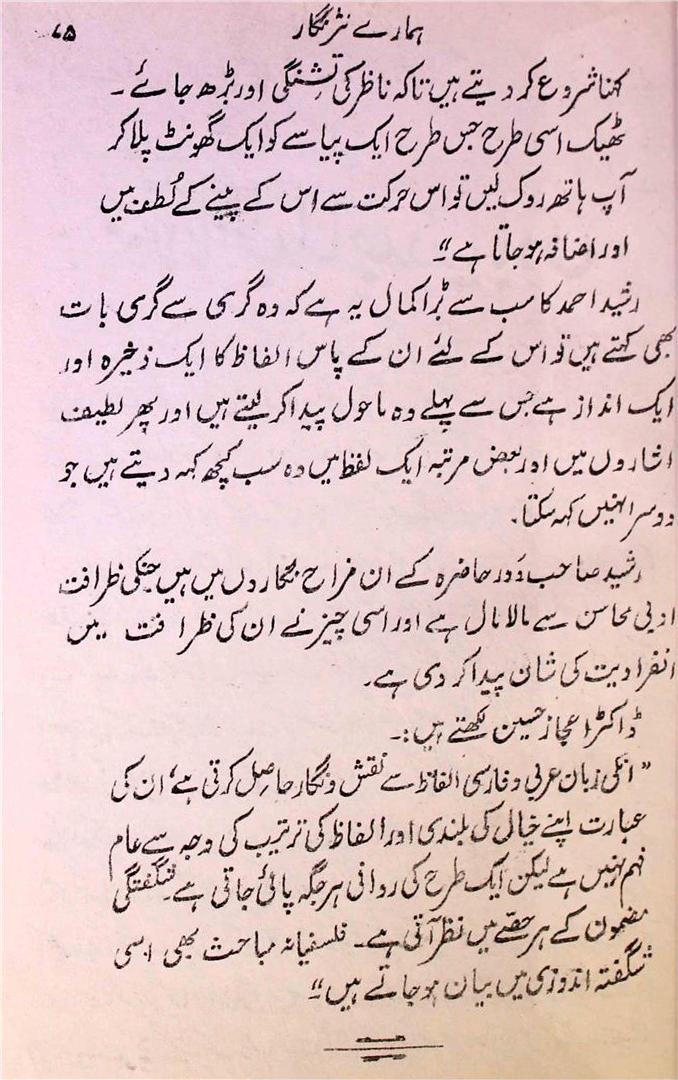 ہمارے نثر نگار
۷۵
کہنا شروع کر دیتے ہیں تاکہ ناظر کی تشنگی اور بڑھ جائے۔
ٹھیک اسی طرح جس طرح ایک پیاسے کو ایک گھونٹ پلا کر
آپ ہاتھ روک لیں تو اس حرکت سے اس کے پینے کے لُطف میں
اور اضافہ ہو جاتا ہے"
رشید احمد کا سب سے بڑا کمال یہ ہے کہ وہ گری سے گری بات
بھی کہتے ہیں تو اس کے لئے ان کے پاس الفاظ کا ایک ذخیرہ اور
ایک انداز ہے جس سے پہلے وہ ماحول پیدا کر لیتے ہیں اور پھر لطیف
اشاروں میں اور بعض مرتبہ ایک لفظ میں وہ سب کچھ کہہ دیتے ہیں جو
دوسرا نہیں کہہ سکتا۔
رشید صاحب دَور حاضرہ کے ان مزاح نگاروں میں ہیں جنکی ظرافت
ادبی محاسن سے مالا مال ہے اور اسی چیز نے ان کی ظرافت میں
انفرادیت کی شان پیدا کر دی ہے۔
ڈاکٹر اعجاز حسین لکھتے ہیں:۔
"انکی زبان عربی و فارسی الفاظ سے نقش و نگار حاصل کرتی ہے، ان کی
عبارت اپنے خیال کی بلندی اور الفاظ کی ترتیب کی وجہ سے عام
فہم نہیں ہے لیکن ایک طرح کی روانی ہر جگہ پائی جاتی ہے۔ شگفتگی
مضمون کے ہر حصّے میں نظر آتی ہے۔ فلسفیانہ مباحث بھی اسی
شگفتہ اندوزی میں بیان ہو جاتے ہیں"